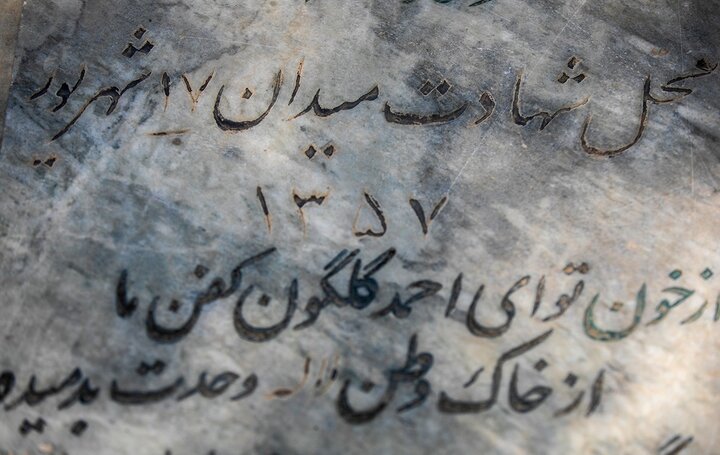 محل شهادت میدان ۱۷ شهریور
۱۳۵۷
از خون تو ای احمد گلگون کفن ما
از خاک وطن لاله وحدت بدمیده